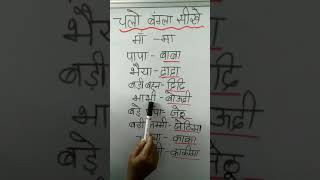 चलो बंगला सीखे
माँ - मा
पापा - बाबा
भैया - दादा
बड़ी बहन - दिदि
भाभी - बौउदी
बड़े - जेठू
बड़ी मम्मी - जेठिमा
काका
काकीमा